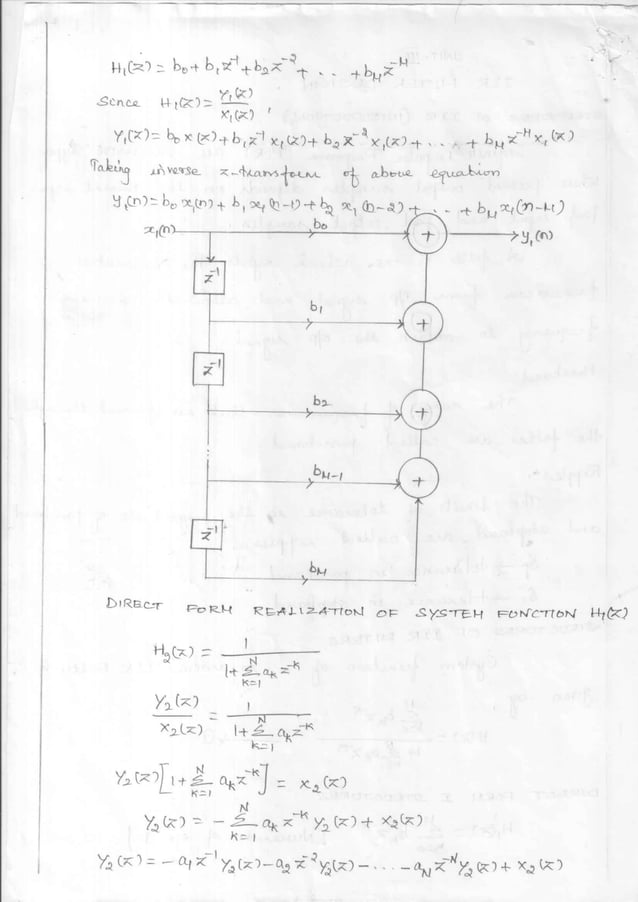 H₁(z) = b₀ + b₁ z⁻¹ + b₂ z⁻² + . . . + b_M z^-M
Since H₁(z) = Y₁(z) / X₁(z) ,
Y₁(z) = b₀ x (z) + b₁ z⁻¹ x₁(z) + b₂ z⁻² x₁(z) + . . . + b_M z^-M x₁(z)
Taking inverse z-transform of above equation
y₁(n) = b₀ x₁(n) + b₁ x₁(n-1) + b₂ x₁(n-2) + . . . + b_M x₁(n-M)
x₁(n) b₀ + y₁(n)
z⁻¹
b₁ +
z⁻¹
b₂ +
b_M-1 +
z⁻¹
b_M
DIRECT FORM REALIZATION OF SYSTEM FUNCTION H₁(z)
H₂(z) = 1 / (1 + Σ_{k=1}^{N} a_k z^-k)
Y₂(z) / X₂(z) = 1 / (1 + Σ_{k=1}^{N} a_k z^-k)
Y₂(z) [1 + Σ_{k=1}^{N} a_k z^-k] = x₂(z)
Y₂(z) = - Σ_{k=1}^{N} a_k z^-k Y₂(z) + X₂(z)
Y₂(z) = -a₁ z⁻¹ Y₂(z) - a₂ z⁻² Y₂(z) - . . . - a_N z^-N Y₂(z) + X₂(z)